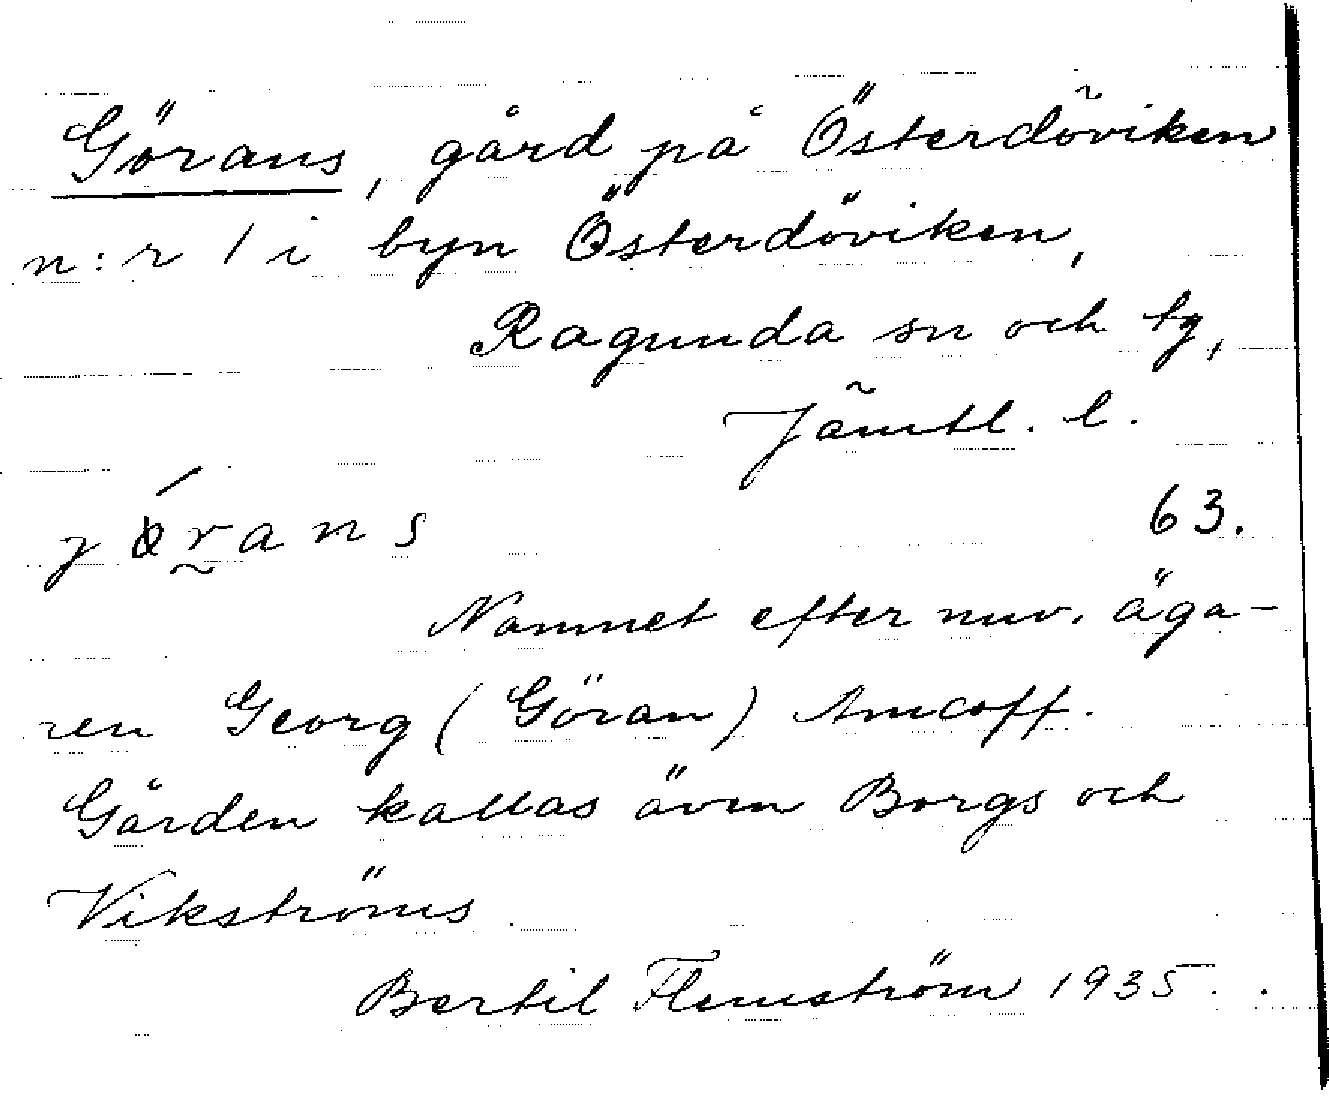 Görans, gård på Österdöviken
n:r 1 i byn Österdöviken,
Ragunda sn och tg,
Jämtl. l.
63.
Namnet efter nuv. äga-
ren Georg (Göran) Amcoff.
Gården kallas även Borgs och
Vikströms.
Bertil Flemström 1935.